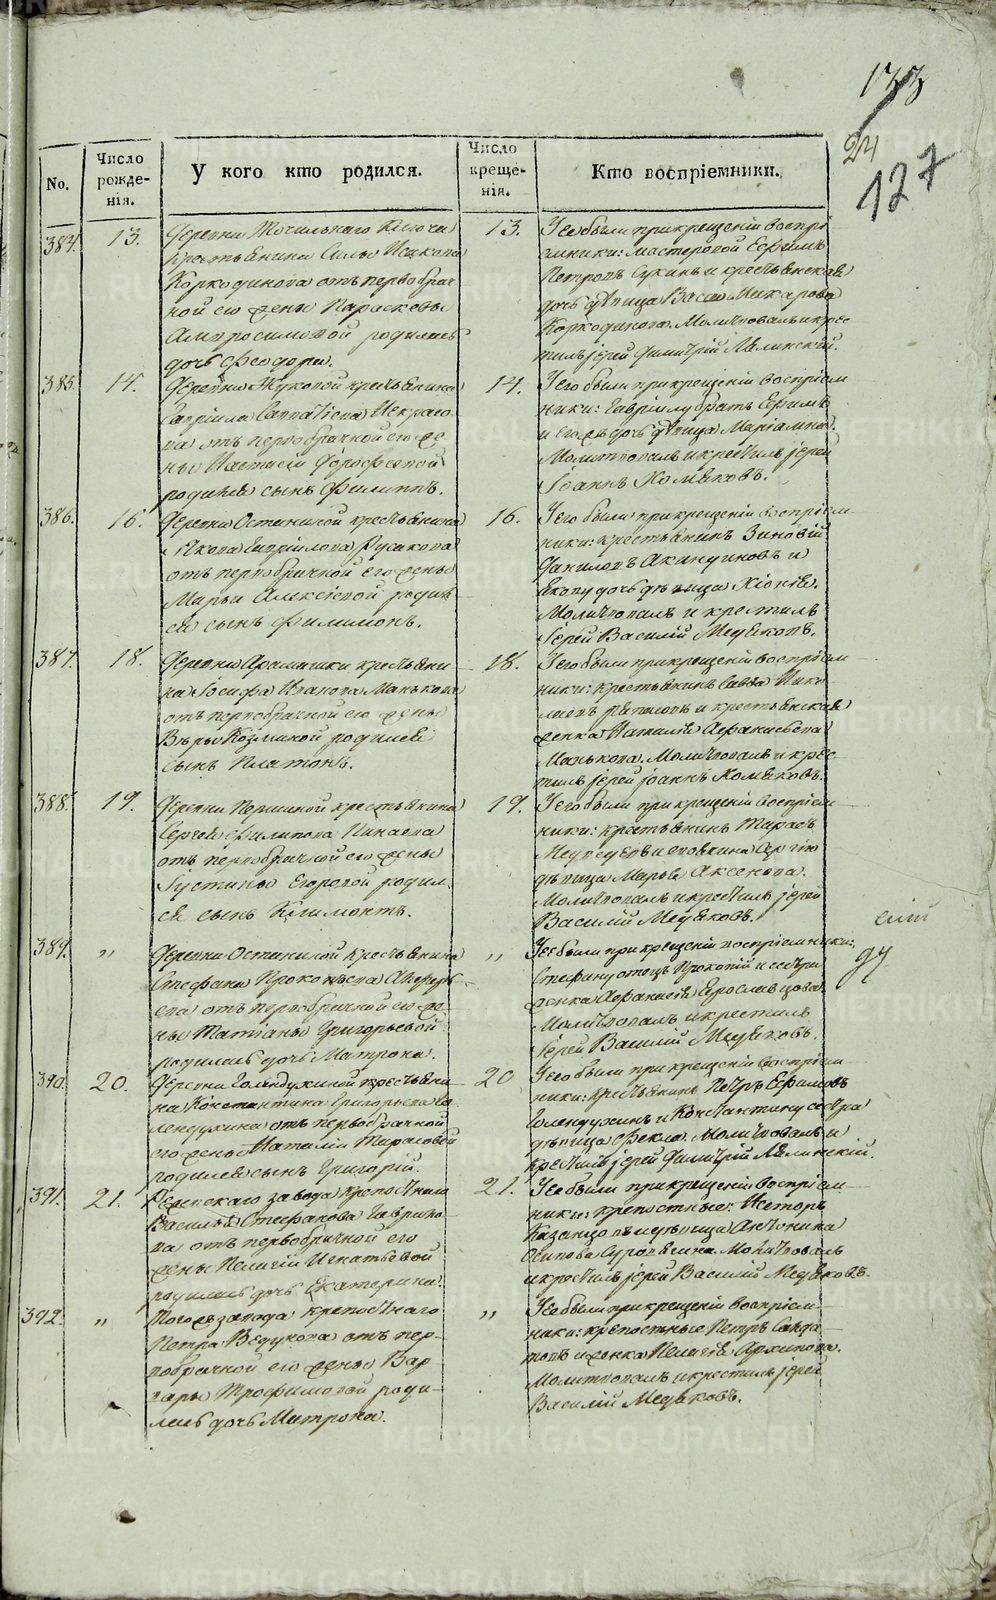 133
24
127
No.
Число рожде- нія.
У кого кто родился.
Число креще- нія.
Кто воспріемники.
384. 13.
Деревни Точильнаго Ключа
крестьянина Силы Исакова
Коркодинова отъ первобрач-
ной его жены Парасковьи
Амвросимовой родилась
дочь Феодора.
13.
У ея были при крещеніи воспрі-
емники: мастеровой Ефимъ
Петровъ и крестьянская
дочь дѣвица Васса Макарова
Коркодинова. Молитвовалъ и крес-
тилъ іерей Димитрій
385. 14.
Деревни крестьянина
Гавріила Савватіева
отъ первобрачной его же-
ны Настасіи Дорофеевой
родился сынъ Филиппъ.
14.
У его были при крещеніи воспріем-
ники: Гавріилу братъ Ефимъ
и его дочь дѣвица Маріамна.
Молитвовалъ и крестилъ іерей
Іоаннъ Хомяковъ.
386. 16.
Деревни Останиной крестьянина
Якова Гавріилова Русакова
отъ первобрачной его жены
Марьи Алексіевой родил-
ся сынъ Филимонъ.
16.
У его были при крещеніи воспріем-
ники: крестьянинъ Зиновій
Даниловъ Акиндиновъ и
Якову дочь дѣвица Хіонія.
Молитвовалъ и крестилъ
іерей Василій Медяковъ.
387. 18.
Деревни Арамашки крестьяни-
на Іосифа Иванова Манькова
отъ первобрачной его жены
Вѣры Козминой родился
сынъ Платонъ.
18.
У его были при крещеніи воспріем-
ники: крестьянинъ Савва Нико-
лаевъ и крестьянская
женка Наталія Афанасьева
Манькова. Молитвовалъ и крес-
тилъ іерей Іоаннъ Хомяковъ.
388. 19.
Деревни Першиной крестьянина
Сергея Филипова Минаева
отъ первобрачной его жены
Іустины Егоровой родил-
ся сынъ Климонтъ.
19.
У его были при крещеніи воспріем-
ники: крестьянинъ Тарасъ
Медведевъ и
дѣвица Марья Аксенова.
Молитвовалъ и крестилъ іерей
Василій Медяковъ.
389. „
Деревни Останиной крестьянина
Стефана Прокопьева
отъ первобрачной его же-
ны Татіаны Григорьевой
родилась дочь Матрона.
„
У ея были при крещеніи воспріемники:
Стефану отецъ Прокопій и
женка Афанасія Ерославцова.
Молитвовалъ и крестилъ
іерей Василій Медяковъ.
390. 20.
Деревни Голендухиной крестьяни-
на Константина Григорьева Го-
лендухина отъ первобрачной
его жены Наталіи Тарасовой
родился сынъ Григорій.
20
У его были при крещеніи воспріем-
ники: крестьянинъ Петръ Ефимовъ
Голендухинъ и Константину сестра
дѣвица Фекла. Молитвовалъ и
крестилъ іерей Димитрій
391. 21.
Режевскаго завода крепостнаго
Василья Стефанова Гаврило-
ва отъ первобрачной его
жены Пелагіи Игнатьевой
родилась дочь Екатерина.
21.
У ея были при крещеніи воспріем-
ники: крепостные: Несторъ
Казанцовъ и дѣвица Антонина
Осипова Молитвовалъ
и крестилъ іерей Василій Медяковъ.
392. „
Того же завода крепостнаго
Петра Ведунова отъ пер-
вобрачной его жены Вар-
вары Трофимовой роди-
лась дочь Матрона.
„
У ея были при крещеніи воспріем-
ники: крепостные Петръ
и женка Пелагія Архипова.
Молитвовалъ и крестилъ іерей
Василій Медяковъ.
METRIKI.GASO-URAL.RU